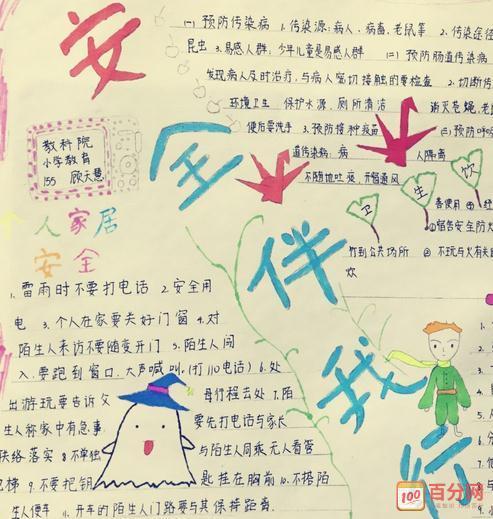 安全伴我行
(一) 预防传染病 1.传染源:病人、病毒、老鼠等 2.传染途径
昆虫 3.易感人群:少年儿童是易感人群 (二) 预防肠道传染病
发现病人及时治疗,与病人密切接触的要检查 2.切断传
环境卫生 保护水源、厕所清洁 消灭苍蝇、老
便后要洗手 3.预防接种疫苗 (三) 预防呼
道传染病:病 人隔离
不随地吐痰,开窗通风
卫 生 饮
竹到公共场所 ② 不玩与火有关
教科院
小学教育
155 顾天慧
个人家居
安全
1.雷雨时不要打电话 2.安全用
电 3.个人在家要关好门窗 4.对
陌生人来访不要随便开门 5.陌生人闯
入,要跑到窗口,大声喊叫(打110电话) 6.外
出游玩要告诉父母行程去处 7.陌
生人称家中有急事 要先打电话与家长
联络落实 8.不单独 与陌生人同乘无人看管
电梯 9.不要把钥 匙挂在胸前 10.不搭陌
生人便车 11.开车的陌生人问路要与其保持距离.
100 百分网